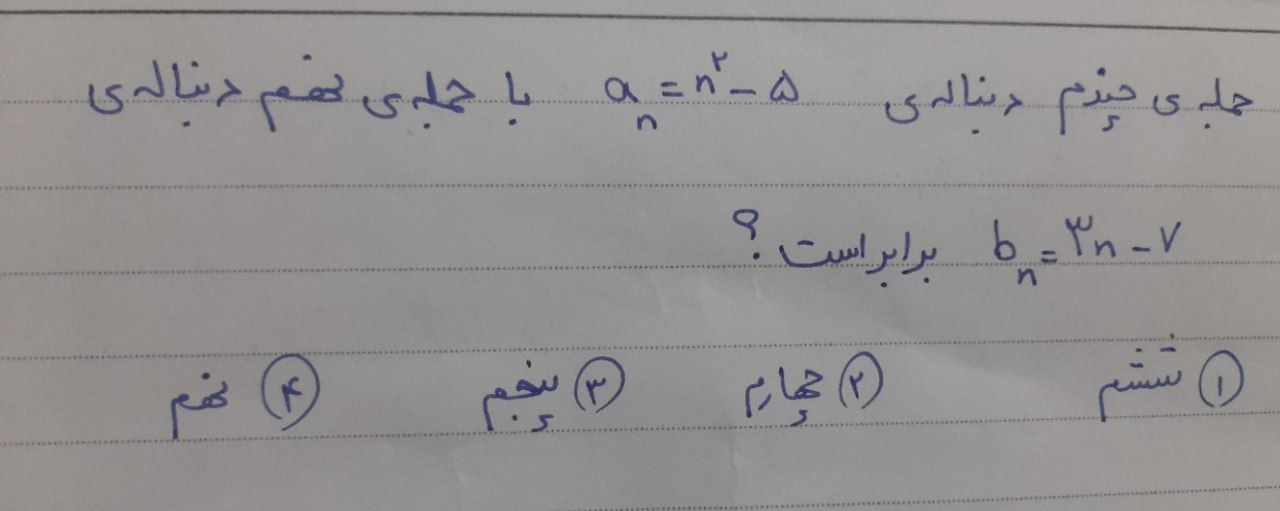 جمله ی چندم دنباله ی aₙ = n² - ۵ با جمله ی نهم دنباله ی
bₙ = ۳n - ۷ برابر است ؟
۱ ششم ۲ چهارم ۳ پنجم ۴ نهم